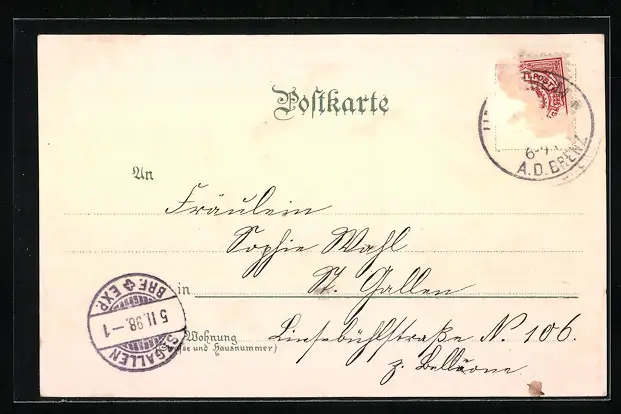 Postkarte
POST
6-7
A.D. BRENZ
An
Fräulein
Sophie Wahl
in St. Gallen
BRF. EXP.
5 II.98.–1
ST. GALLEN
Wohnung Linsebühlstraße N. 106.
(Straße und Hausnummer)
z. Bellvone